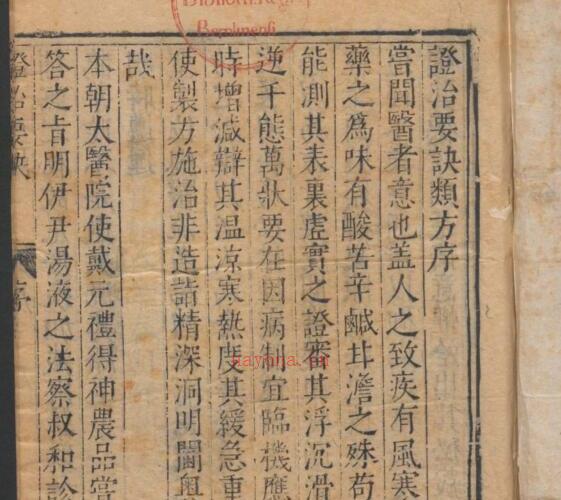 證治要訣類方序
嘗聞醫者意也盖人之致疾有風寒
藥之爲味有酸苦辛鹹甘澹之殊苟
能測其表裏虚實之證審其浮沉滑
逆千態萬狀要在因病制宜臨機應
時增減辯其温涼寒熱度其緩急重
使製方施治非造詣精深洞明閫奥
哉
本朝太醫院使戴元禮得神農品嘗
答之肯明伊尹湯液之法察叔和診
證治要訣
序
Berolinensi
nayona.cn